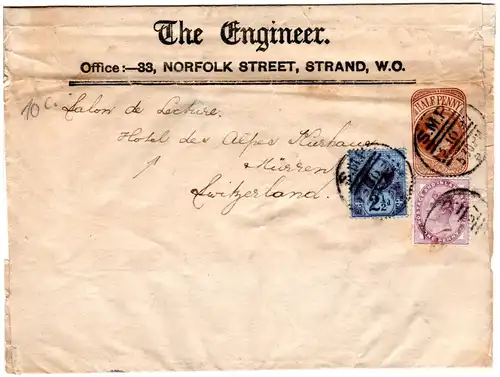 The Engineer.
Office:—33, NORFOLK STREET, STRAND, W.C.
10 c.
Salon de Lecture
Hotel des Alpes Kurhaus
Mürren
Switzerland.
HALF PENNY
2½d